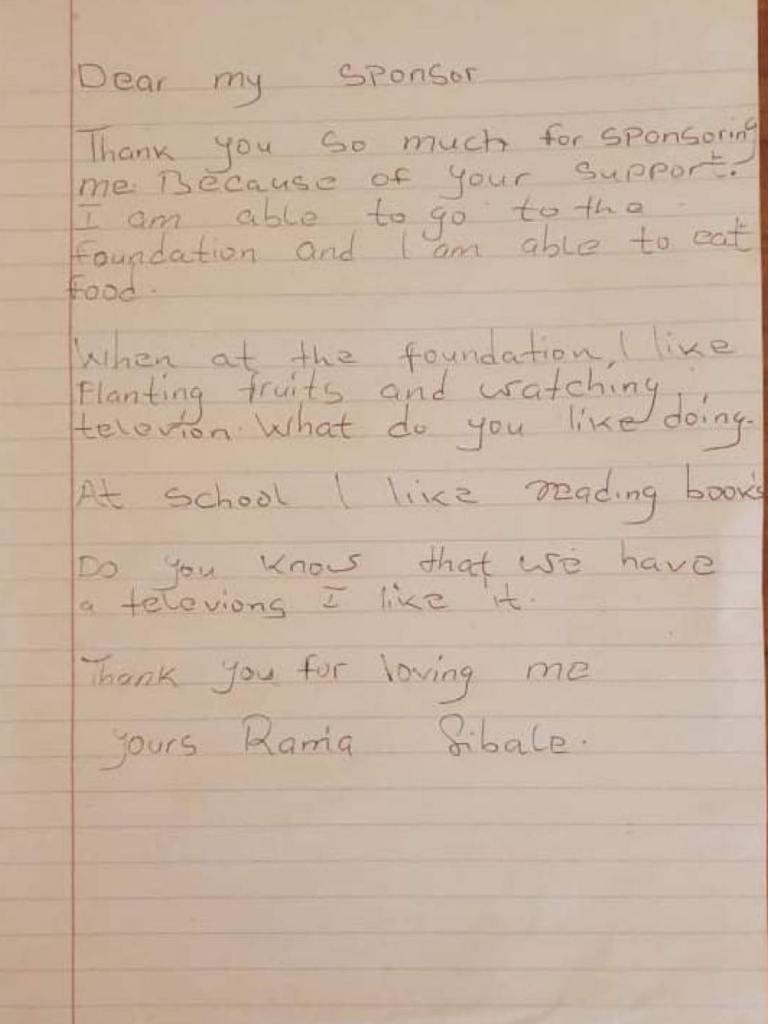 Dear my sponsor
Thank you so much for sponsoring
me. Because of your support.
I am able to go to the
foundation and I am able to eat
food.
When at the foundation, I like
Planting fruits and watching
televion. What do you like doing.
At school I like reading books
Do you know that we have
a televions I like it.
Thank you for loving me
yours Rama Sibale.